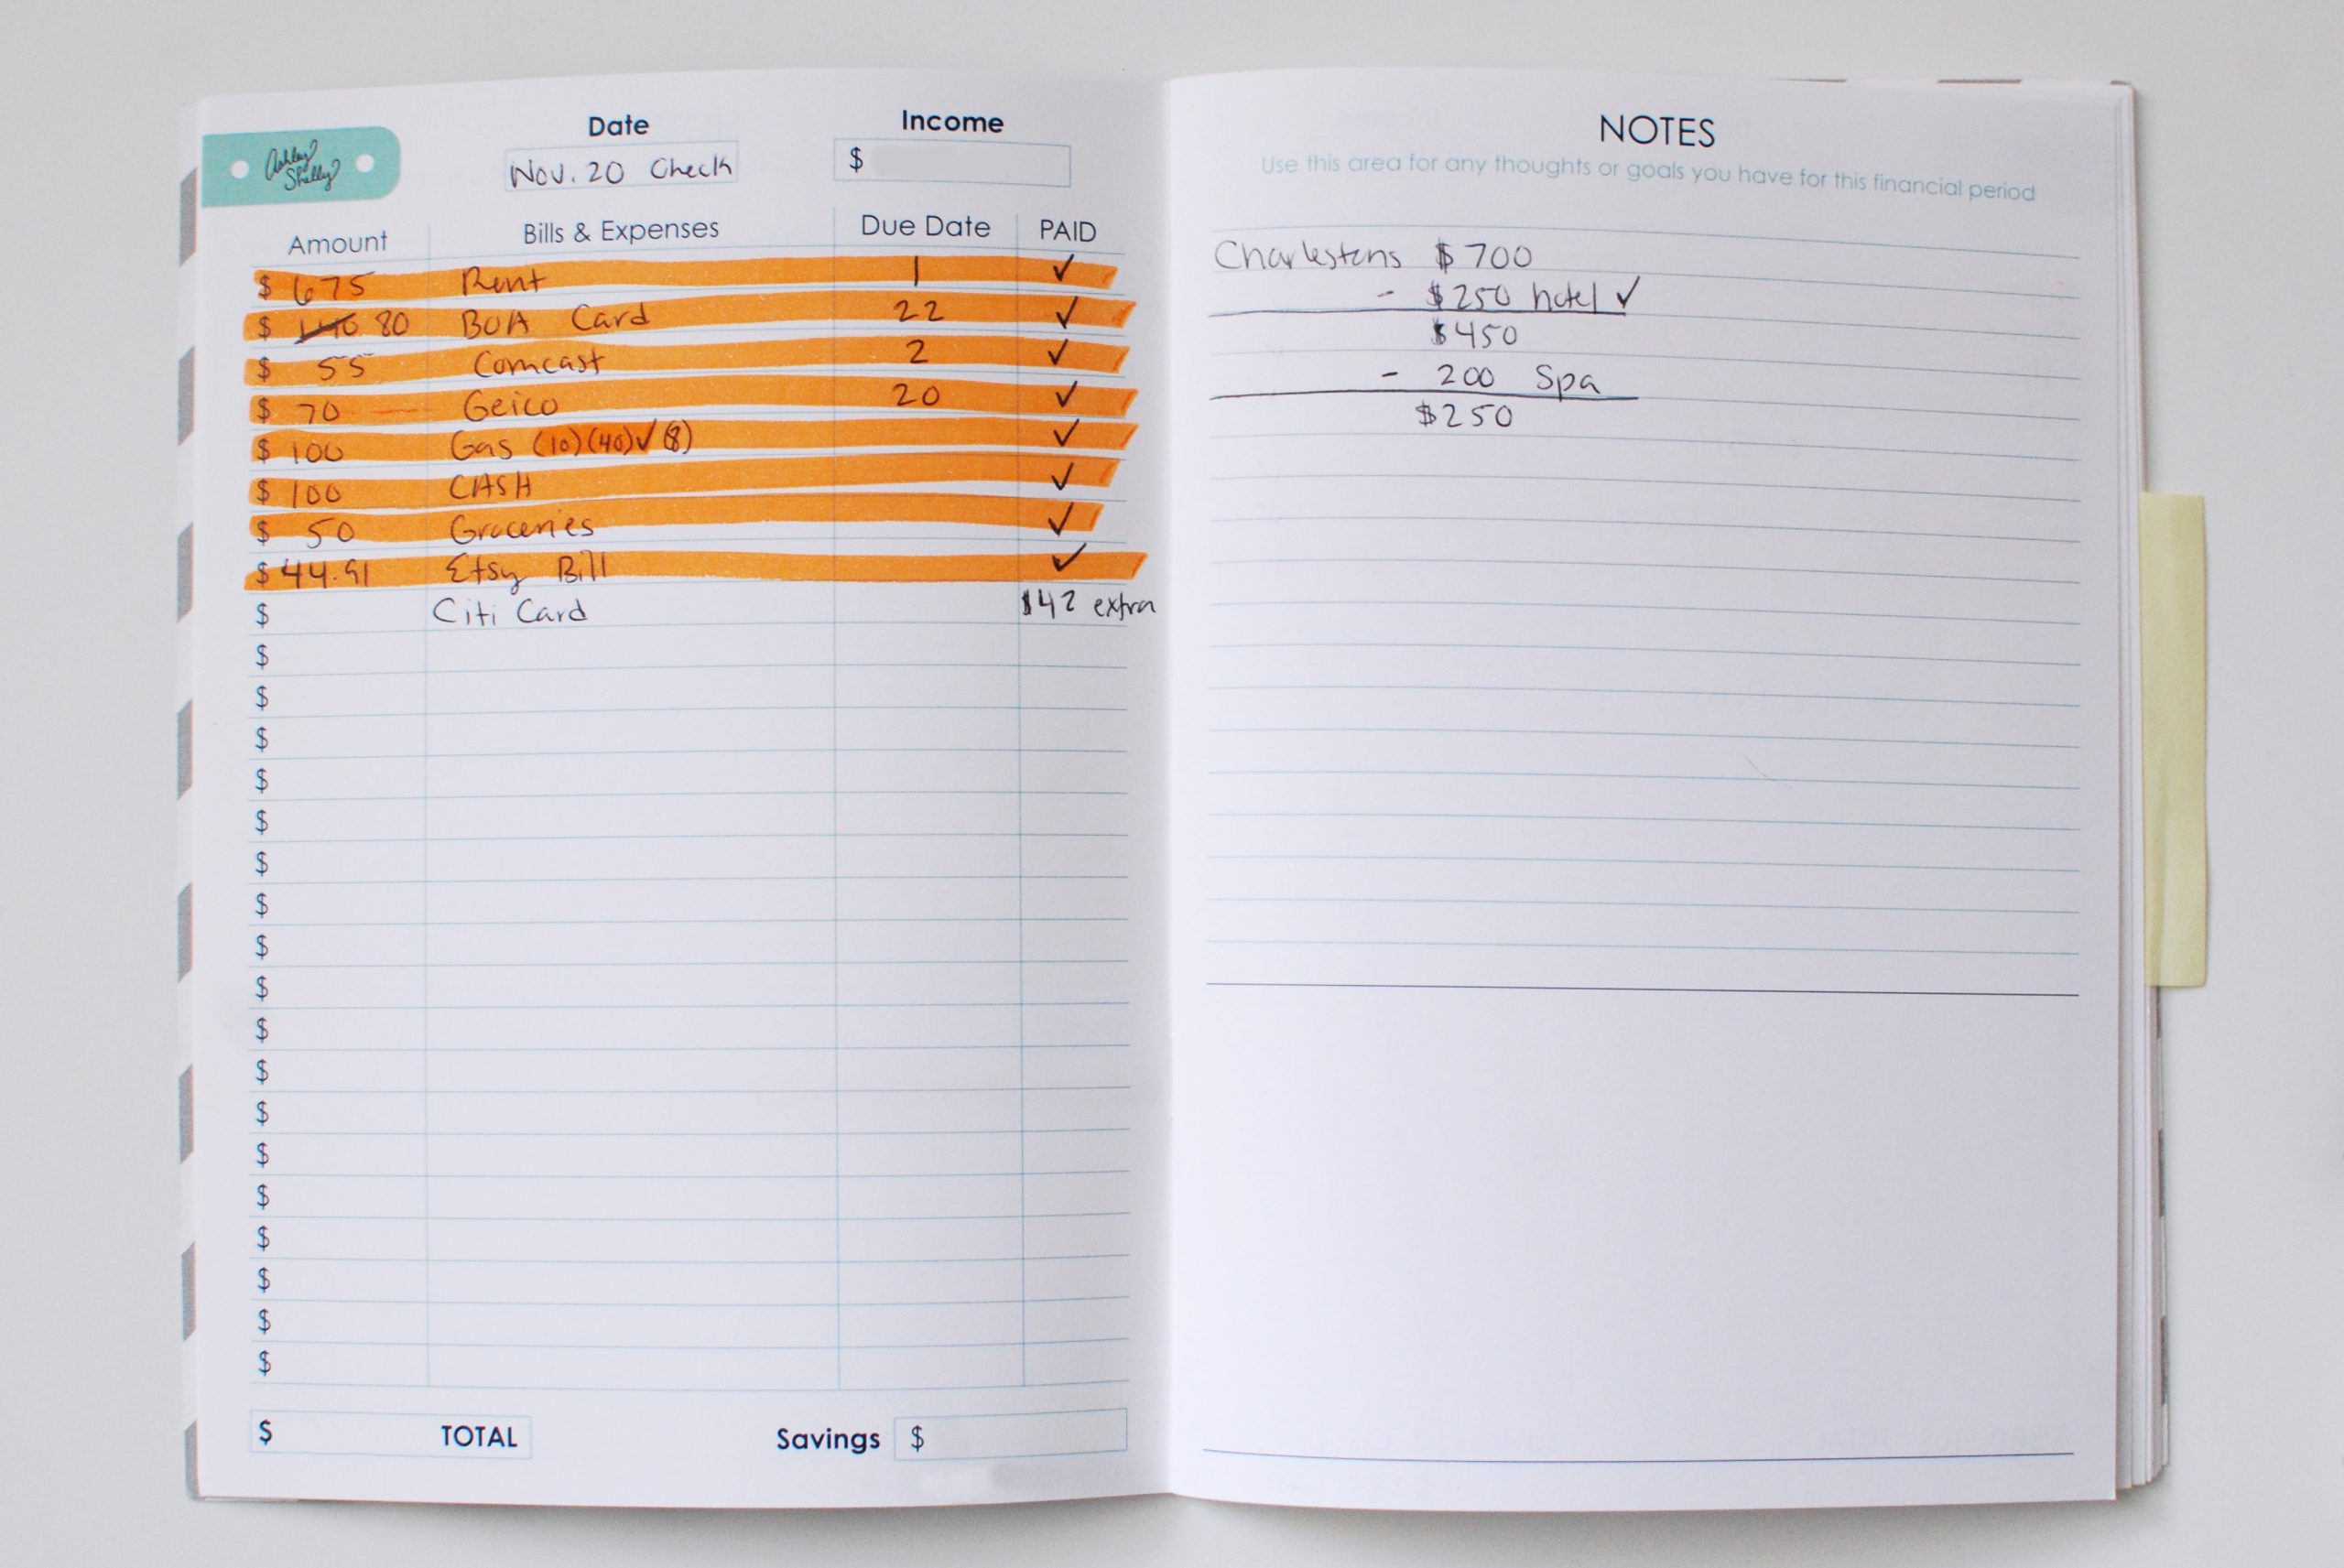 Ashley Shelly
Date
Income
Nov. 20 Check
$
Amount Bills & Expenses Due Date PAID
$ 675 Rent 1 ✓
$ 140 80 BOA Card 22 ✓
$ 55 Comcast 2 ✓
$ 70 Geico 20 ✓
$ 100 Gas (10)(40)✓(8) ✓
$ 100 CASH ✓
$ 50 Groceries ✓
$ 44.91 Etsy Bill ✓
$ Citi Card $42 extra
$
$
$
$
$
$
$
$
$
$
$
$
$
$
$
$
$
$
$ TOTAL Savings $
NOTES
Use this area for any thoughts or goals you have for this financial period
Charlestons $700
- $250 hotel ✓
$450
- 200 Spa
$250